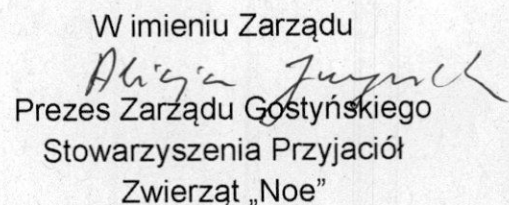 W imieniu Zarządu
Alicja
Prezes Zarządu Gostyńskiego
Stowarzyszenia Przyjaciół
Zwierząt „Noe”